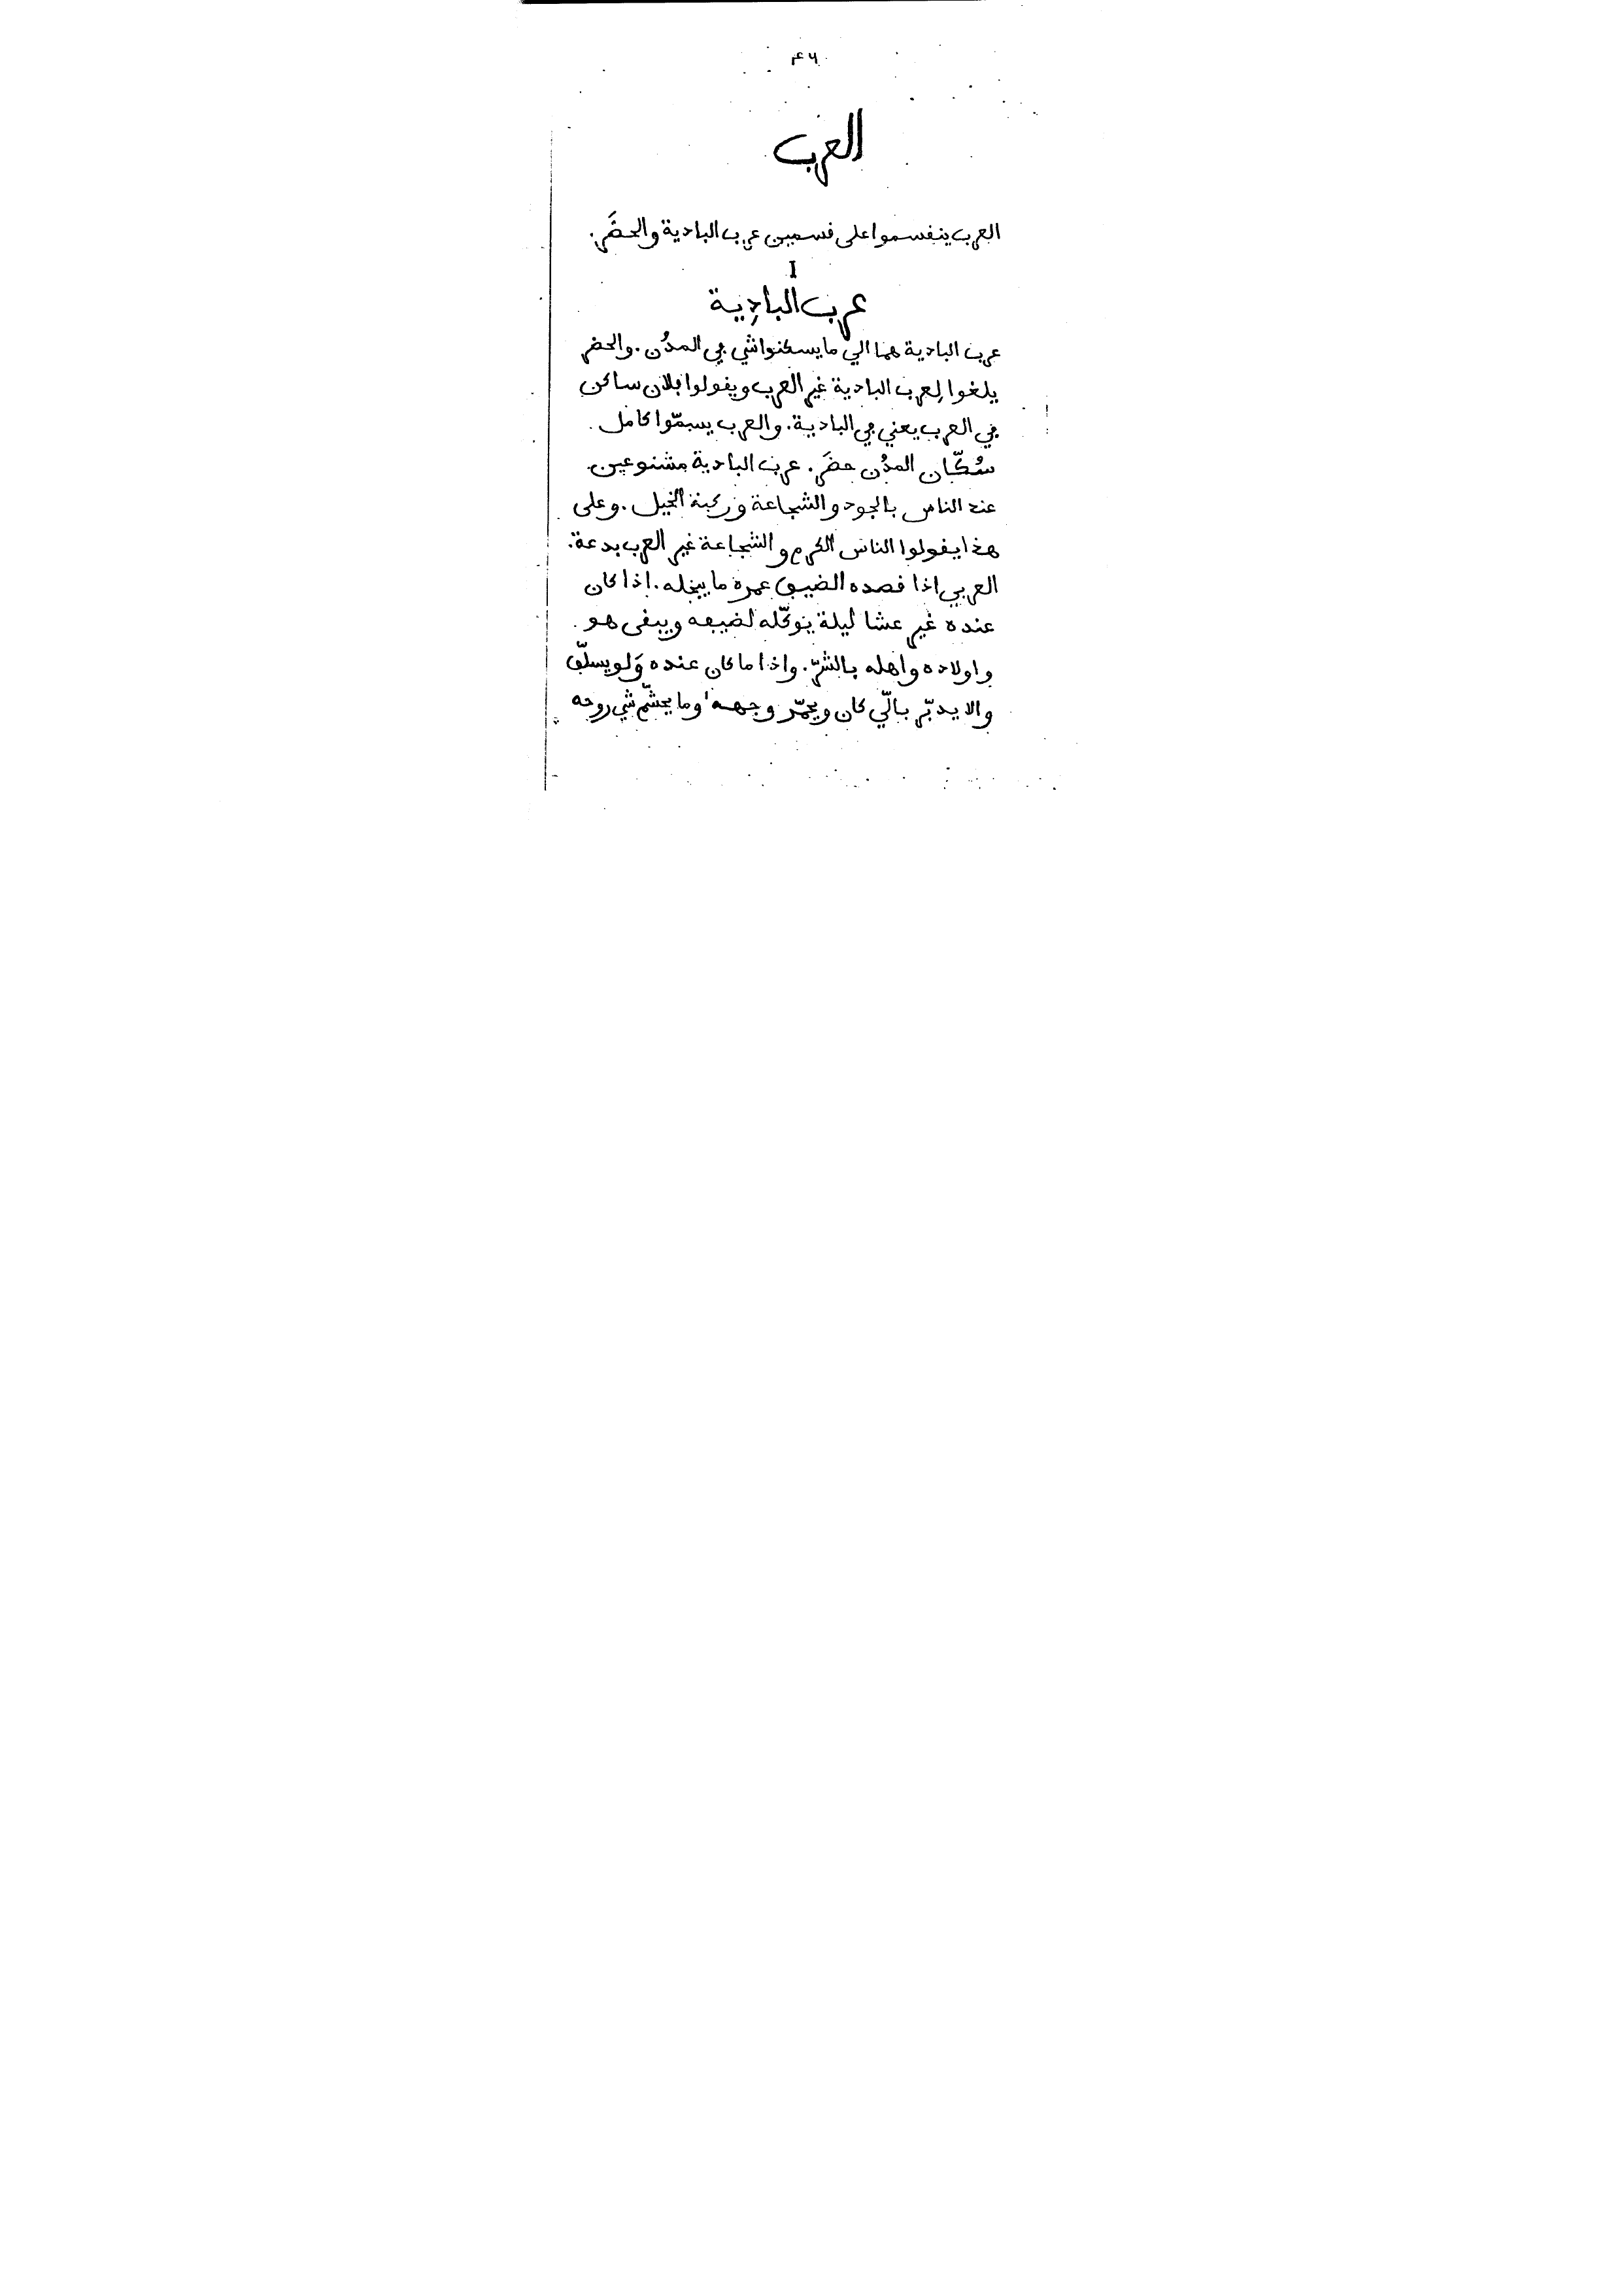 ٤٦
العرب
العرب ينقسموا على قسمين عرب البادية والحضَر.
I
عرب البادِية
عرب البادية هما الي ما يسكنوا شي في المدُن. والحضر
يلغوا لِعرب البادية غير العرب ويقولوا فلان ساكن
في العرب يعني في البادية. والعرب يسمّوا كامل
سُكّان المدُن حضَر. عرب البادية مشنوعين
عند الناس بالجود والشجاعة وركبة الخيل. وعلى
هذا يقولوا الناس الكرم والشجاعة غير العرب بدعة.
العربي اذا قصده الضيف عمره ما يبخله. اذا كان
عنده غير عشا ليلة يوكّله لضيفه ويبقى هو
واولاده واهله بالشرّ. واذا ما كان عنده وَلو يسلّف
والا يدبّر بالّي كان ويحمّر وجهه وما يحشّم شي روحه